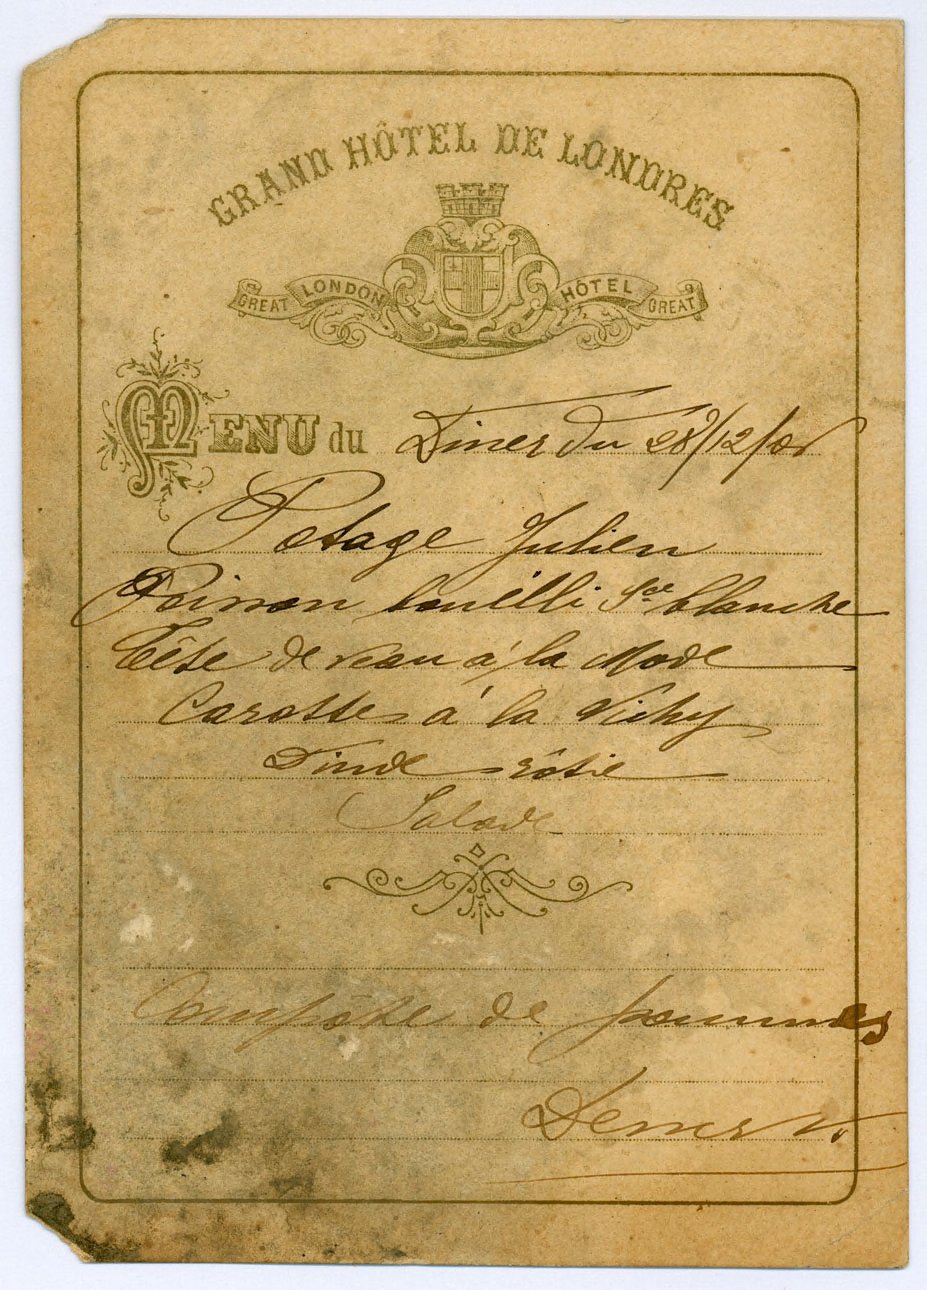 GRAND HÔTEL DE LONDRES
GREAT LONDON HÔTEL GREAT
MENU du Diner du 28/12/
Potage Julien
Poisson bouilli Sce blanche
Tête de veau à la Mode
Carottes à la Vichy
Dinde rôtie
Salade
Compôte de pommes